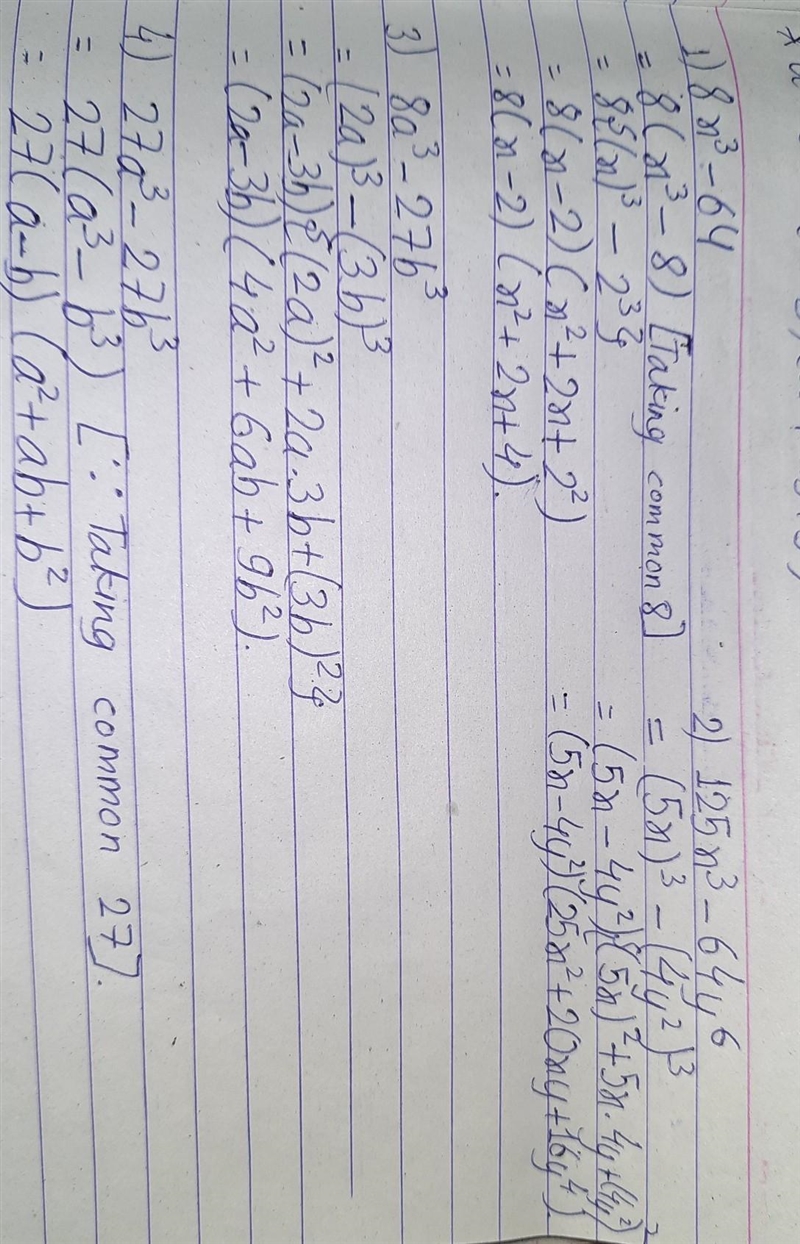 1) 8x³ - 64
= 8(x³ - 8) [Taking common 8]
= 8{(x)³ - 2³}
= 8(x - 2)(x² + 2x + 2²)
= 8(x - 2)(x² + 2x + 4).
2) 125x³ - 64y⁶
= (5x)³ - (4y²)³
= (5x - 4y²){(5x)² + 5x . 4y + (4y²)²
= (5x - 4y²)(25x² + 20xy + 16y⁴).
3) 8a³ - 27b³
= (2a)³ - (3b)³
= (2a - 3b){(2a)² + 2a . 3b + (3b)²}
= (2a - 3b)(4a² + 6ab + 9b²).
4) 27a³ - 27b³
= 27(a³ - b³) [∵ Taking common 27].
= 27(a - b)(a² + ab + b²)